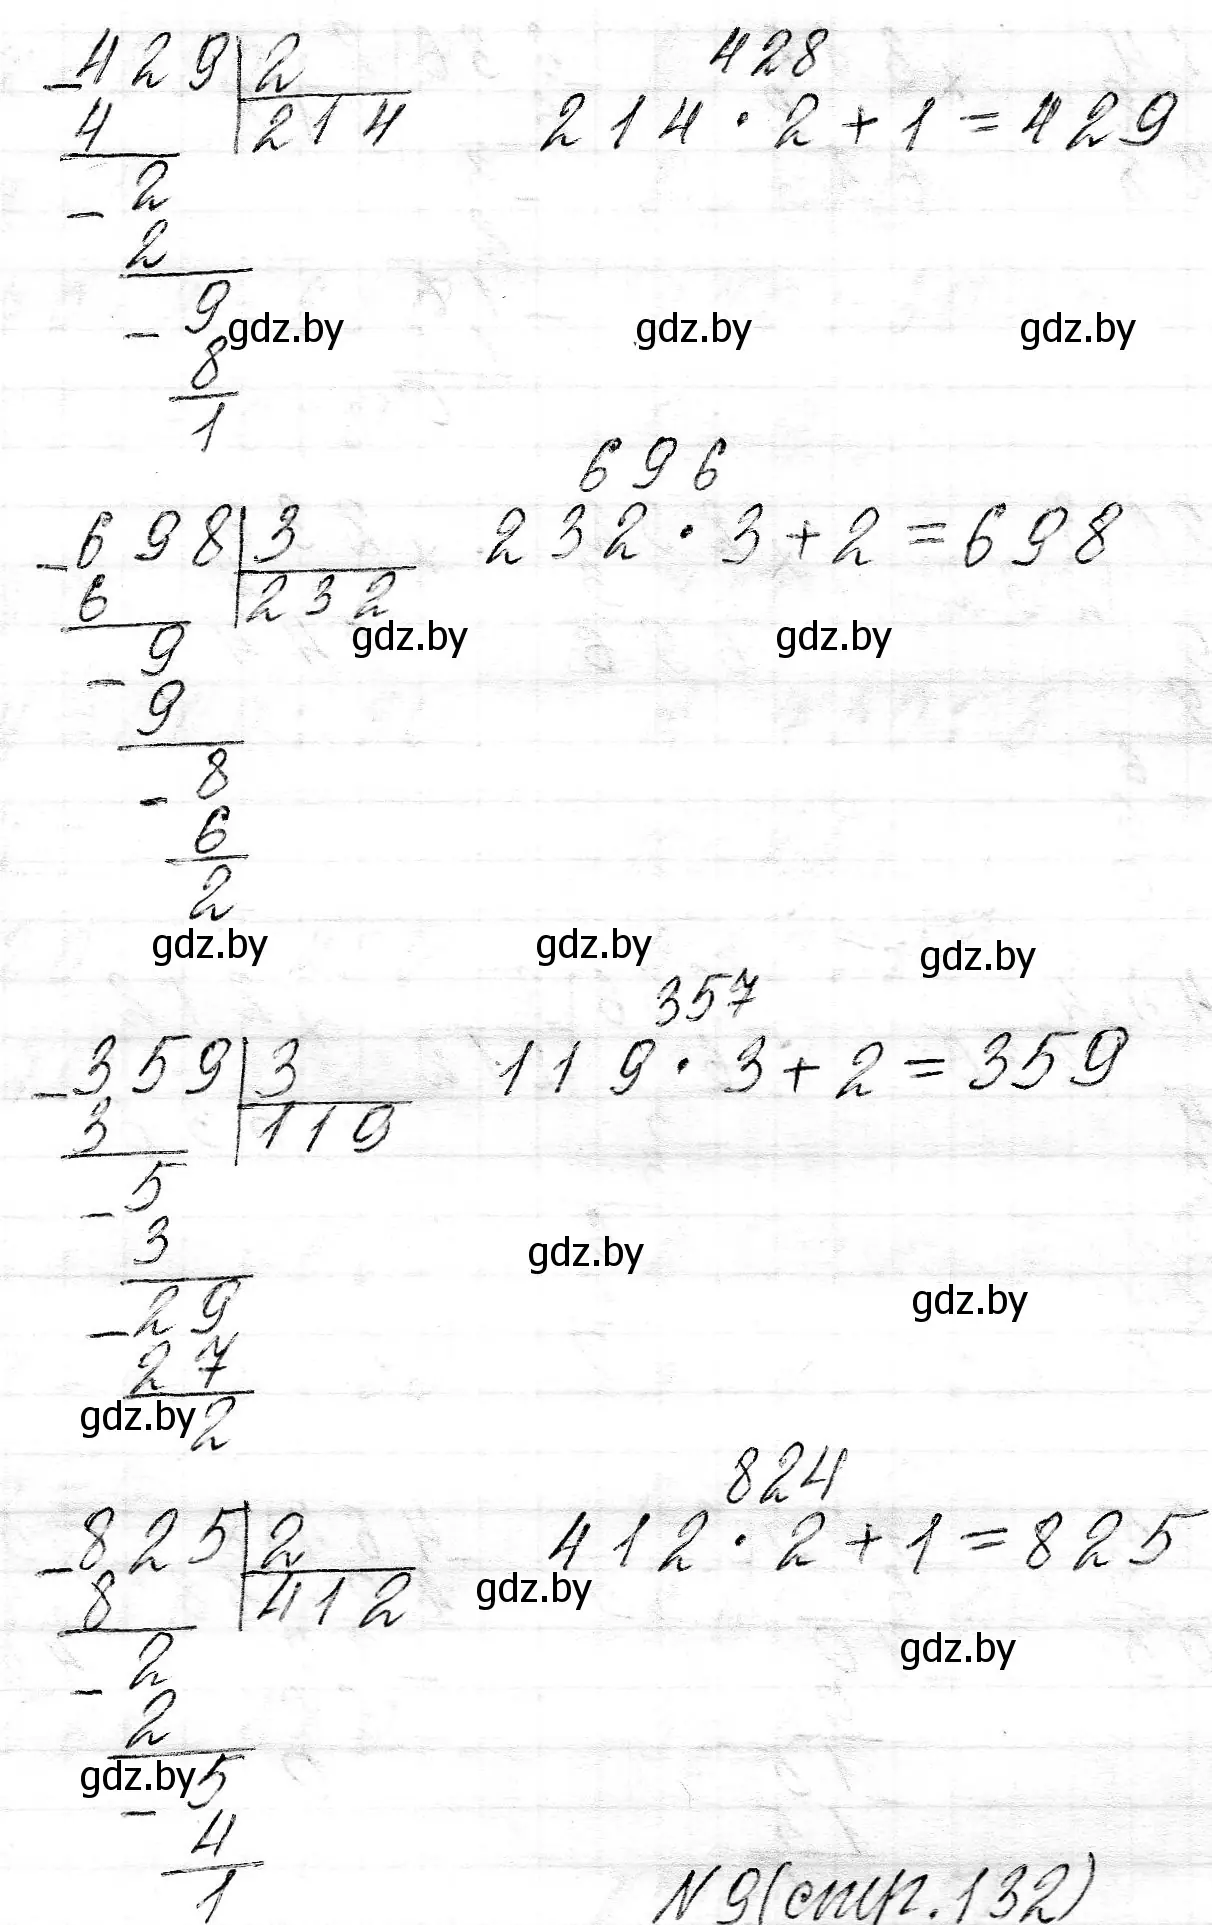 428
429 2 214 · 2 + 1 = 429
4 214
- 2
2
- 9 gdz.by gdz.by gdz.by
8
1
696
698 3 232 · 3 + 2 = 698
6 232
- 9 gdz.by gdz.by
9
- 8
6
2
gdz.by gdz.by gdz.by
357
359 3 119 · 3 + 2 = 359
3 119
- 5
3 gdz.by
- 29 gdz.by
27
gdz.by 2
824
825 2 412 · 2 + 1 = 825
8 412 gdz.by
- 2 gdz.by
2
gdz.by 5
- 4
1 N 9 (стр. 132)